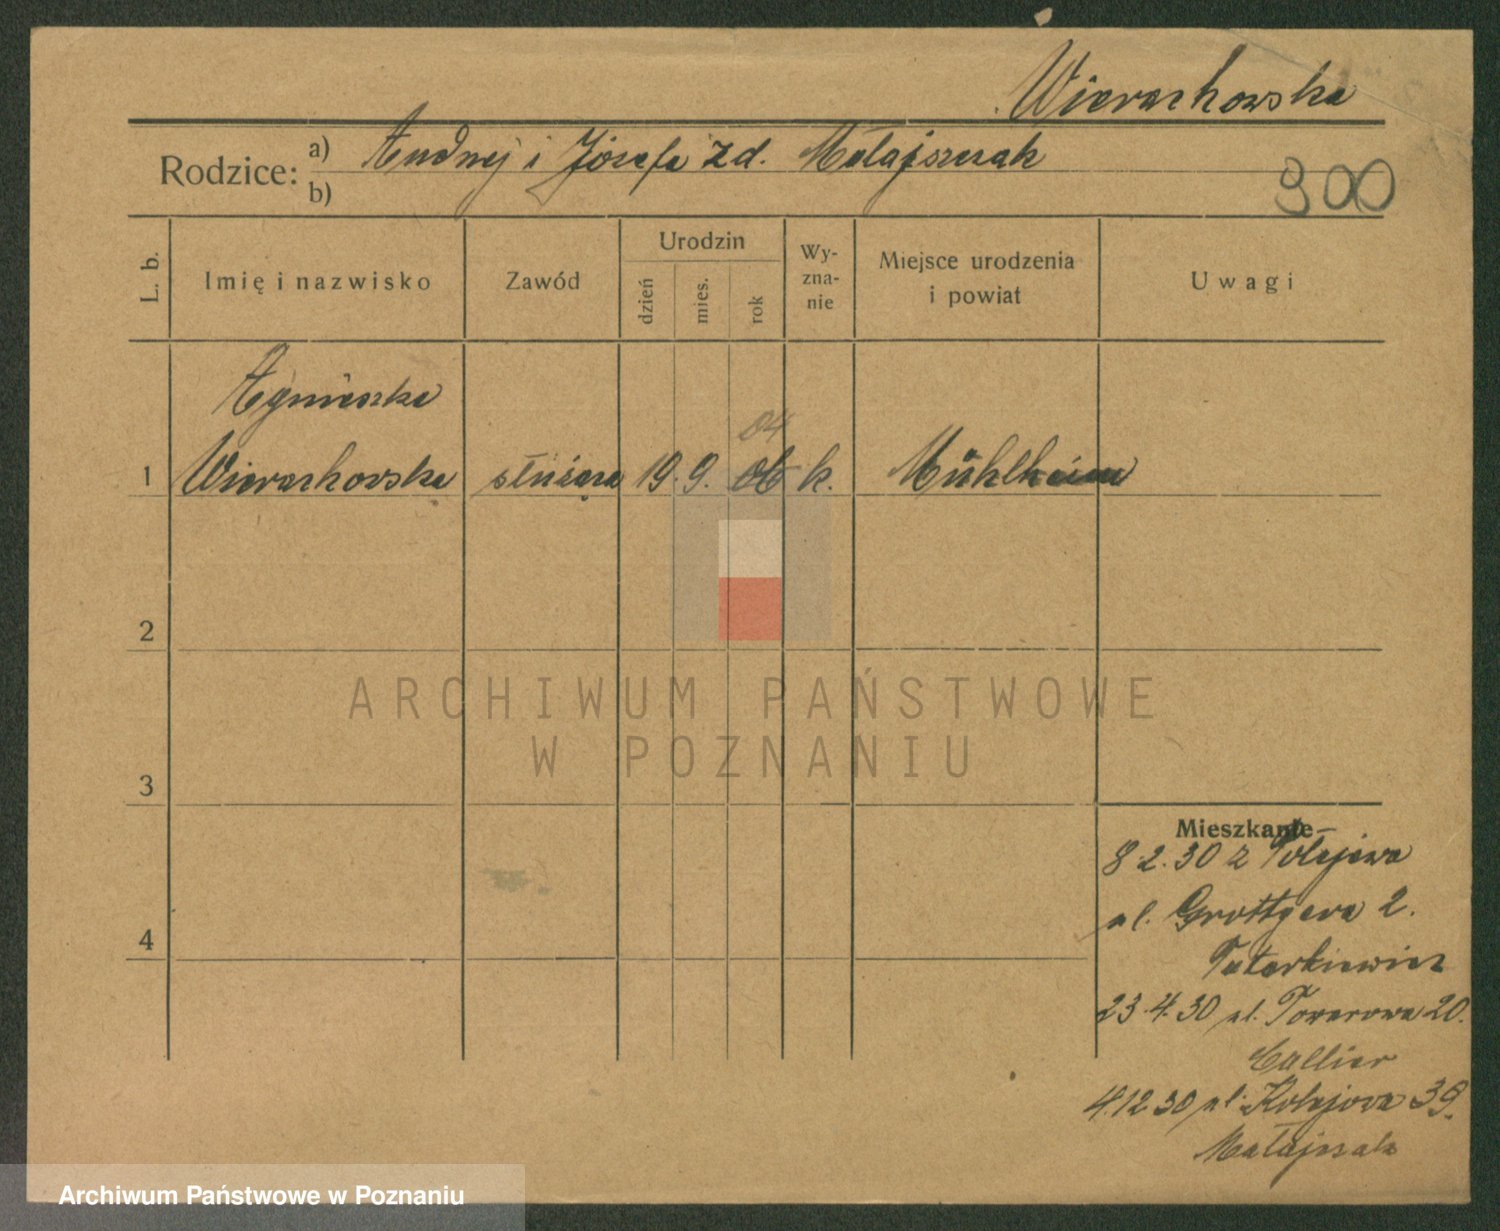 Wierachowska
Rodzice: a) Andrzej i Józefa z d. Matajszczak
b)
900
L. b.
Imię i nazwisko
Zawód
Urodzin
dzień
mies.
rok
Wy-
zna-
nie
Miejsce urodzenia
i powiat
Uwagi
Agnieszka
04
1 Wierachowska służąca 19. 9. 06 k. Mühlheim
2
3
4
Mieszkanie
8.2.30 z Połajewa
ul. Grottgera 2.
Tatarkiewicz
23.4.30 ul. Towarowa 20.
Callier
4.12.30 ul. Kolejowa 39.
ARCHIWUM PAŃSTWOWE
W POZNANIU
Archiwum Państwowe w Poznaniu